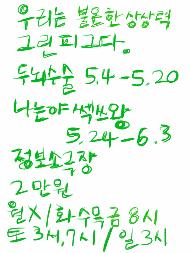 우리는 불온한 상상력
그린피그다.
두뇌수술 5.4-5.20
나는야 섹쓰왕
5.24-6.3
정보소극장
2만원
월X/화수목금 8시
토 3시,7시/일 3시